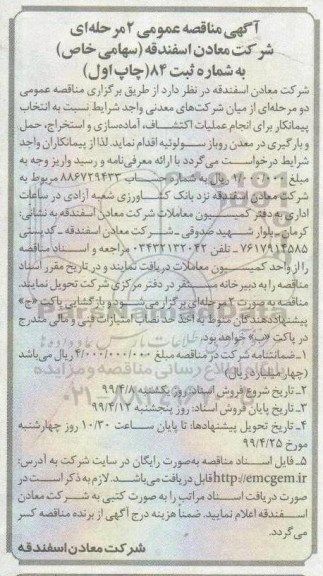 آگهی مناقصه عمومی ۲ مرحله‌ای
شرکت معادن اسفندقه (سهامی خاص)
به شماره ثبت ۸۴ (چاپ اول)
شرکت معادن اسفندقه در نظر دارد از طریق برگزاری مناقصه عمومی
دو مرحله‌ای از میان شرکت‌های معدنی واجد شرایط نسبت به انتخاب
پیمانکار برای انجام عملیات اکتشاف، آماده‌سازی و استخراج، حمل
و بارگیری در معدن روباز سولوئیه اقدام نماید. لذا از پیمانکاران واجد
شرایط درخواست می‌گردد با ارائه معرفی‌نامه و رسید واریز وجه به
مبلغ ۱/۰۰۰/۰۰۰ ریال به شماره حساب ۸۸۶۷۲۹۴۳۳ مربوط به
شرکت معادن اسفندقه نزد بانک کشاورزی شعبه آزادی در ساعات
اداری به دفتر کمیسیون معاملات شرکت معادن اسفندقه به نشانی:
کرمان ـ بلوار شهید صدوقی ـ شرکت معادن اسفندقه ـ کدپستی
۷۶۱۷۹۱۴۵۸۵ ـ تلفن ۰۳۴۳۲۱۳۲۰۴۲ مراجعه و اسناد مناقصه
را از واحد کمیسیون معاملات دریافت نمایند و در تاریخ مقرر اسناد
مناقصه را به دبیرخانه مستقر در دفتر مرکزی شرکت تحویل نمایند.
مناقصه به صورت ۲ مرحله‌ای برگزار می‌شود و بازگشایی پاکت «ج»
پیشنهاددهندگان منوط به اخذ حد نصاب امتیازات فنی و مالی مندرج
در پاکت «ب» خواهد بود.
۱ـ ضمانتنامه شرکت در مناقصه مبلغ ۴/۰۰۰/۰۰۰/۰۰۰ ریال می‌باشد
(چهار میلیارد ریال)
۲ـ تاریخ شروع فروش اسناد: روز یکشنبه ۹۹/۴/۸
۳ـ تاریخ پایان فروش اسناد: روز پنجشنبه ۹۹/۴/۱۲
۴ـ تاریخ تحویل پیشنهادها: تا پایان ساعت ۱۰/۳۰ روز چهارشنبه
مورخ ۹۹/۴/۲۵
۵ـ فایل اسناد مناقصه به‌صورت رایگان در سایت شرکت به آدرس:
http://emcgem.ir قابل دریافت می‌باشد. لازم به ذکر است در
صورت دریافت اسناد مراتب را به صورت کتبی به شرکت معادن
اسفندقه اعلام نمایید. ضمناً هزینه درج آگهی از برنده مناقصه کسر
می‌گردد.
شرکت معادن اسفندقه